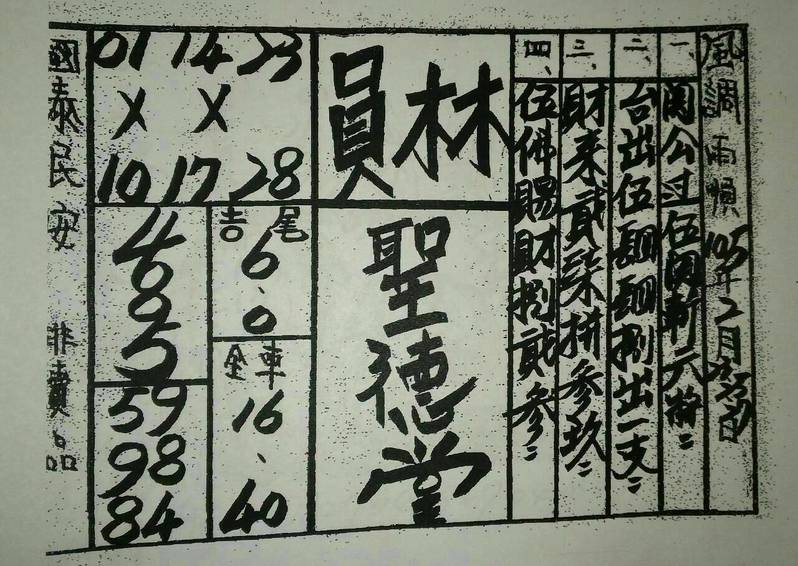 風調雨順 105年2月25日
一、關公过伍関斬六將〃
二、台出伍肆肆捌出一支〃
三、財来貳柒拼參玖〃
四、伍佛賜財捌貳參〃
林員
聖德堂
01 14 23
X X
10 17 28
吉尾
6、0
全車
16、40
4
6
0
5
59
98
84
國泰民安 非賣品